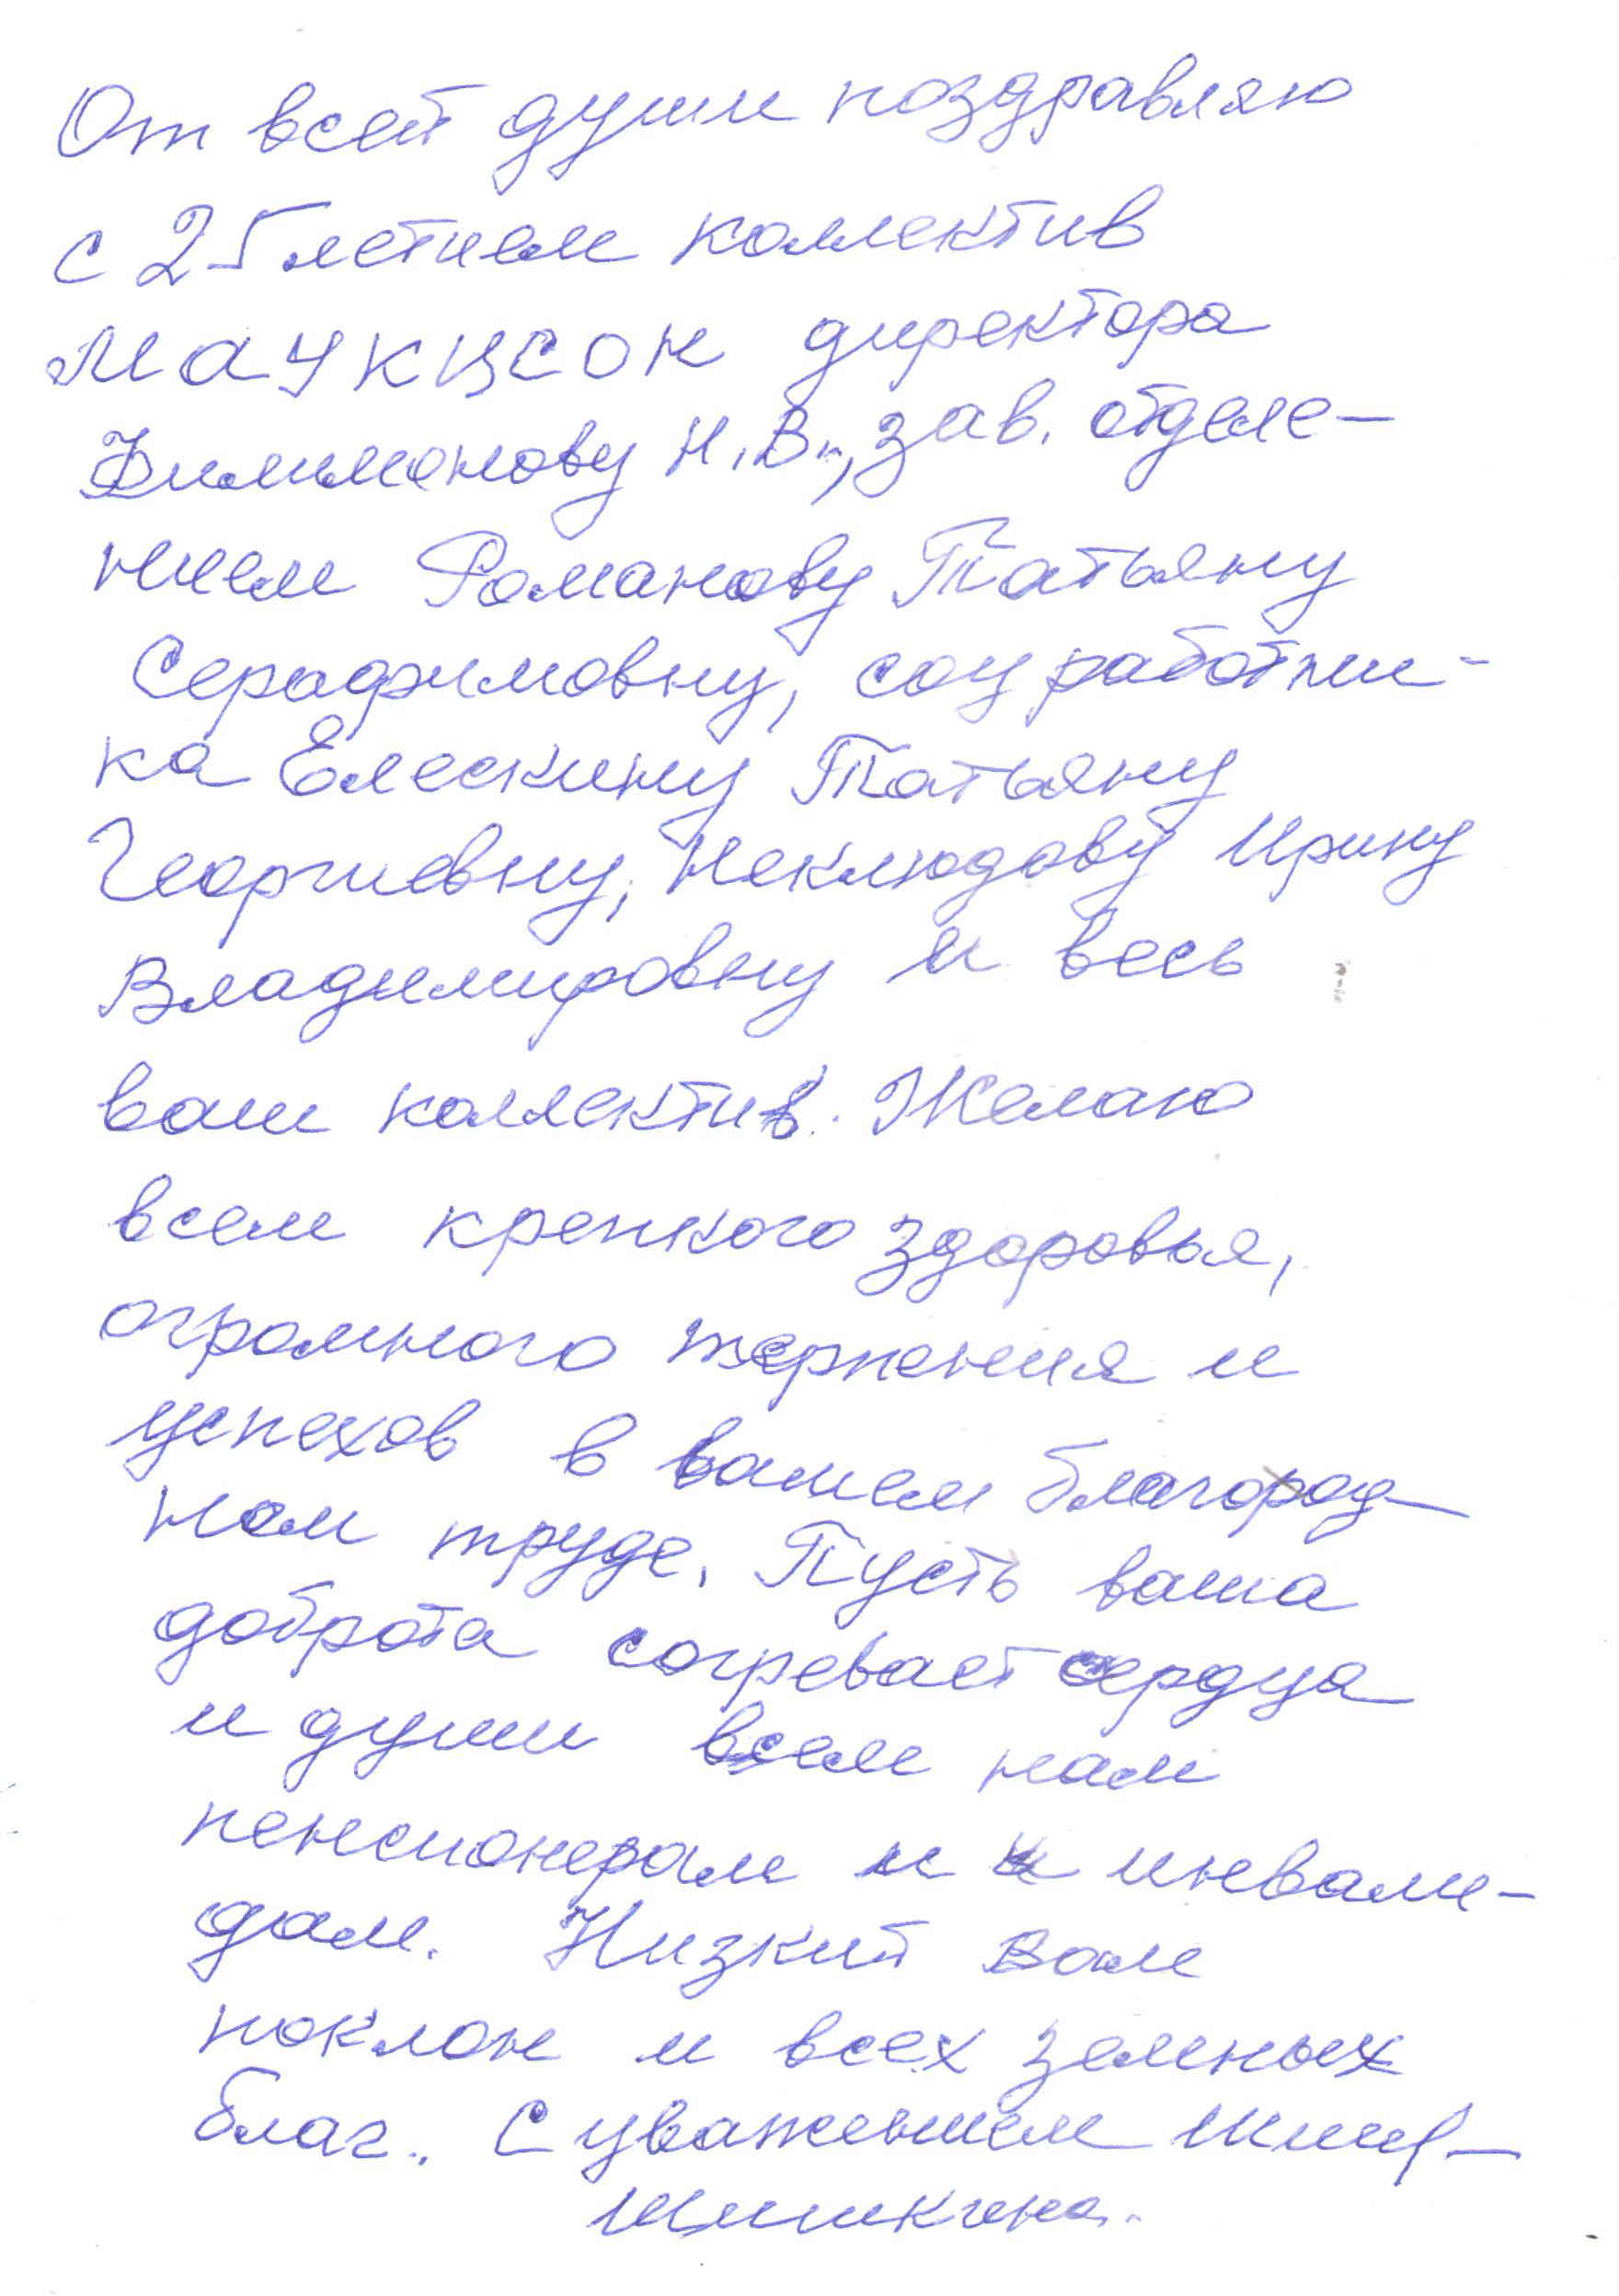 От всей души поздравляю
с 25летием коллектив
МАУКЦСОН директора
Филимонову Н.В., зав. отделе-
нием Романову Татьяну
Серафимовну, соцработни-
ка Елескину Татьяну
Георгиевну, Неклюдову Ирину
Владимировну и весь
ваш коллектив. Желаю
всем крепкого здоровья,
огромного терпения и
успехов в вашем благород-
ном труде. Пусть ваша
доброта согревает сердца
и души всем нам
пенсионерам и инвали-
дам. Низкий Вам
поклон и всех земных
благ. С уважением
Шишкина.